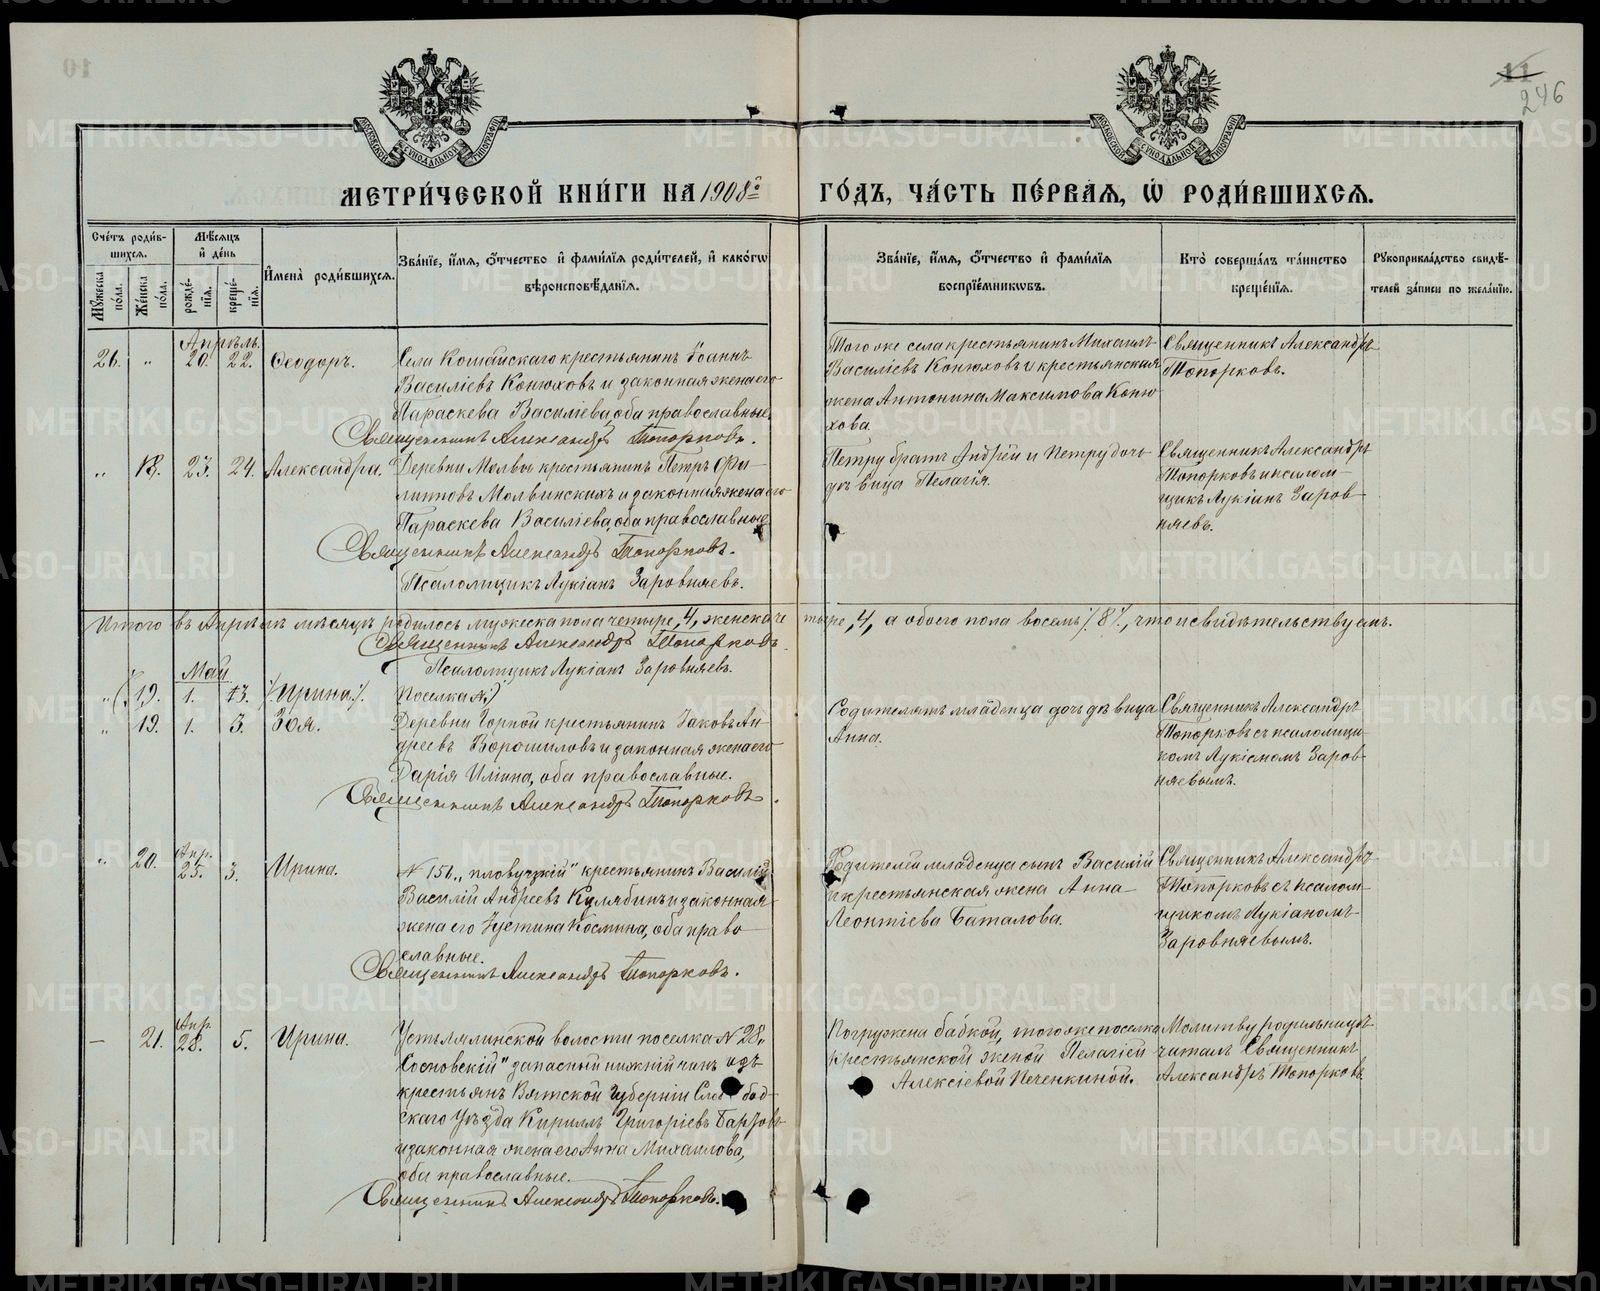 11
246
МОСКОВСКОЙ СѴНОДАЛЬНОЙ ТИПОГРАФІИ
МОСКОВСКОЙ СѴНОДАЛЬНОЙ ТИПОГРАФІИ
МЕТРИ́ЧЕСКОЙ КНИ́ГИ НА 1908й ГО́ДЪ, ЧА́СТЬ ПЕ́РВАѦ, Ѡ҆ РОДИ́ВШИХСѦ.
Сче́тъ роди́в-
шихсѧ.
Мꙋ́жеска по́ла.
Же́нска по́ла.
Мѣ́сѧцъ и҆ де́нь
рожде́-
нїѧ.
креще́-
нїѧ.
И҆мена̀ роди́вшихсѧ.
Зва́нїе, и҆́мѧ, ѻ҆́тчество и҆ фами́лїѧ роди́телей, и҆ како́гѡ
вѣроисповѣ́данїѧ.
Зва́нїе, и҆́мѧ, ѻ҆́тчество и҆ фами́лїѧ
воспрїе́мникѡвъ.
Кто̀ соверша́лъ та́инство
креще́нїѧ.
Рꙋкоприкла́дство свидѣ́-
телей за́писи по жела́нїю.
Апрѣль.
26. „ 20. 22. Ѳеодоръ.
Села Кошайскаго крестьянинъ Іоаннъ
Василіевъ Конюховъ и законная жена его
Параскева Василіева, оба православные.
Священникъ Александръ Топорковъ.
Того же села крестьянинъ Михаилъ
Василіевъ Конюховъ и крестьянская
жена Антонина Максимова Коню
хова.
Священникъ Александръ
Топорковъ.
„ 18. 23. 24. Александра.
Деревни Молвы крестьянинъ Петръ Фи-
липповъ Молвинскихъ и законная жена его
Параскева Василіева, оба православные.
Священникъ Александръ Топорковъ.
Псаломщикъ Лукіанъ Заровняевъ.
Петру братъ Андрей и Петру дочь
дѣвица Пелагія.
Священникъ Александръ
Топорковъ и псалом-
щикъ Лукіанъ Заров-
няевъ.
Итого въ Апрѣлѣ мѣсяцѣ родилось мужеска пола четыре, 4, женска че тыре, 4, а обоего пола восемь /. 8 /., что и свидѣтельствуемъ.
Священникъ Александръ Топорковъ.
Псаломщикъ Лукіанъ Заровняевъ.
Май
„ 19. 1. 13. /Ирина./.
Поселка №)
„ 19. 1. 3. Зоя.
Деревни Горной крестьянинъ Іаковъ Ан-
дреевъ Ворошиловъ и законная жена его
Дарія Иліина, оба православные.
Священникъ Александръ Топорковъ.
Родителямъ младенца дочь дѣвица
Анна.
Священникъ Александръ
Топорковъ съ псаломщи-
комъ Лукіаномъ Заров-
няевымъ.
„ 20. Апр. 25. 3. Ирина.
№ 151 „ крестьянинъ Василій
Василій Андреевъ Кулябинъ и законная
жена его Іустина Космина, оба право
славные.
Священникъ Александръ Топорковъ.
Родителей младенца сынъ Василій
и крестьянская жена Анна
Леонтіева Баталова.
Священникъ Александръ
Топорковъ съ псалом-
щикомъ Лукіаномъ
Заровняевымъ.
— 21. Апр. 28. 5. Ирина.
Устлялинской волости поселка № 28„
Сосновскій" запасный нижній чинъ изъ
крестьянъ Вятской Губерніи Слобод-
скаго Уѣзда Кириллъ Григоріевъ
и законная жена его Анна Михаилова,
оба православные.
Священникъ Александръ Топорковъ.
Погружена бабкой, того же поселка
крестьянской женой Пелагіей
Алексіевой Печенкиной.
Молитву родильницѣ
читалъ Священникъ
Александръ Топорковъ.
METRIKI.GASO-URAL.RU